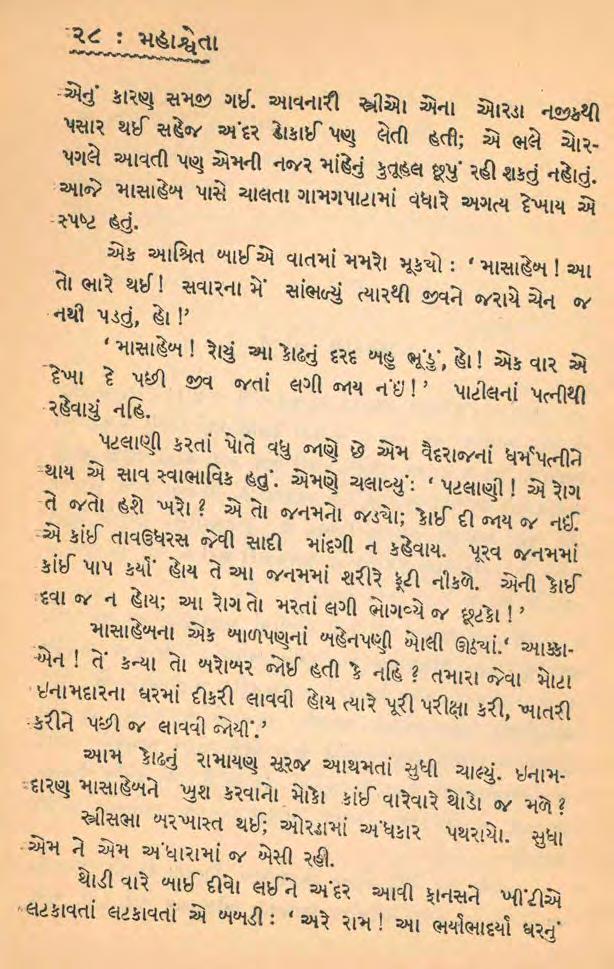 ૨૮ : મહાશ્વેતા
એનું કારણ સમજી ગઈ. આવનારી સ્ત્રીઓ એના ઓરડા નજીકથી
પસાર થઈ સહેજ અંદર ડોકાઈ પણ લેતી હતી; એ ભલે ચોર-
પગલે આવતી પણ એમની નજર માંહેનું કુતૂહલ છૂપું રહી શકતું નહોતું.
આજે માસાહેબ પાસે ચાલતા ગામગપાટામાં વધારે અગત્ય દેખાય એ
સ્પષ્ટ હતું.
એક આશ્રિત બાઈએ વાતમાં મમરો મૂકયો : ‘ માસાહેબ ! આ
તો ભારે થઈ ! સવારના મેં સાંભળ્યું ત્યારથી જીવને જરાયે ચેન જ
નથી પડતું, હો !’
‘ માસાહેબ ! રોયું આ કોઢનું દરદ બહુ ભૂંડું, હો ! એક વાર એ
દેખા દે પછી જીવ જતાં લગી જાય નઇં ! ’ પાટીલનાં પત્નીથી
રહેવાયું નહિ.
પટલાણી કરતાં પોતે વધુ જાણે છે એમ વૈદરાજનાં ધર્મપત્નીને
થાય એ સાવ સ્વાભાવિક હતું. એમણે ચલાવ્યું : ‘ પટલાણી ! એ રોગ
તે જતો હશે ખરો ? એ તો જનમનો જડ્યો; કોઈ દી જાય જ નઈં.
એ કાંઈ તાવઉધરસ જેવી સાદી માંદગી ન કહેવાય. પૂરવ જનમમાં
કાંઈ પાપ કર્યાં હોય તે આ જનમમાં શરીરે ફૂટી નીકળે. એની કોઈ
દવા જ ન હોય; આ રોગ તો મરતાં લગી ભોગવ્યે જ છૂટકો ! ’
માસાહેબના એક બાળપણનાં બહેનપણી બોલી ઊઠ્યાં.‘ આક્કા-
બેન ! તેં કન્યા તો બરોબર જોઈ હતી કે નહિ ? તમારા જેવા મોટા
ઇનામદારના ઘરમાં દીકરી લાવવી હોય ત્યારે પૂરી પરીક્ષા કરી, ખાતરી
કરીને પછી જ લાવવી જોયીં.’
આમ કોઢનું રામાયણ સૂરજ આથમતાં સુધી ચાલ્યું. ઇનામ-
દારણ માસાહેબને ખુશ કરવાનો મોકો કાંઈ વારેવારે થોડો જ મળે ?
સ્ત્રીસભા બરખાસ્ત થઈ; ઓરડામાં અંધકાર પથરાયો. સુધા
એમ ને એમ અંધારામાં જ બેસી રહી.
થોડી વારે બાઈ દીવો લઈને અંદર આવી ફાનસને ખીંટીએ
લટકાવતાં લટકાવતાં એ બબડી : ‘ અરે રામ ! આ ભર્યાભાદર્યા ઘરનું